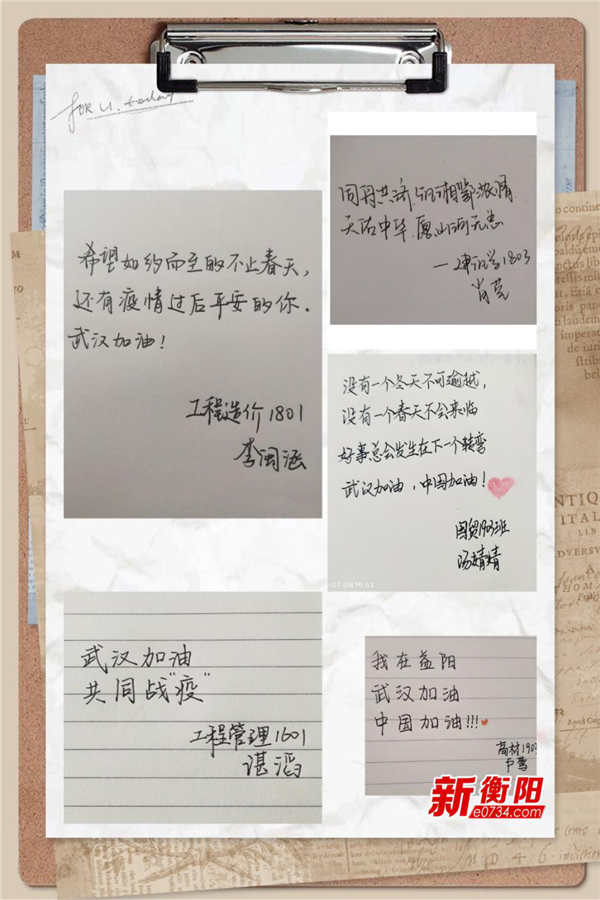 FOR U. today
希望如约而至的不止春天，
还有疫情过后平安的你。
武汉加油！
工程造价1801
李闽涵
同舟共济 湘鄂浓情
天佑中华 愿山河无恙
1803
肖芸
没有一个冬天不可逾越，
没有一个春天不会来临
好事总会发生在下一个转弯
武汉加油，中国加油！
国贸1903班
汤婧婧
SHOT ON MI 6X
武汉加油
共同战"疫"
工程管理1601
谌滔
我在益阳
武汉加油
中国加油!!!
高材190
新衡阳
e0734.com